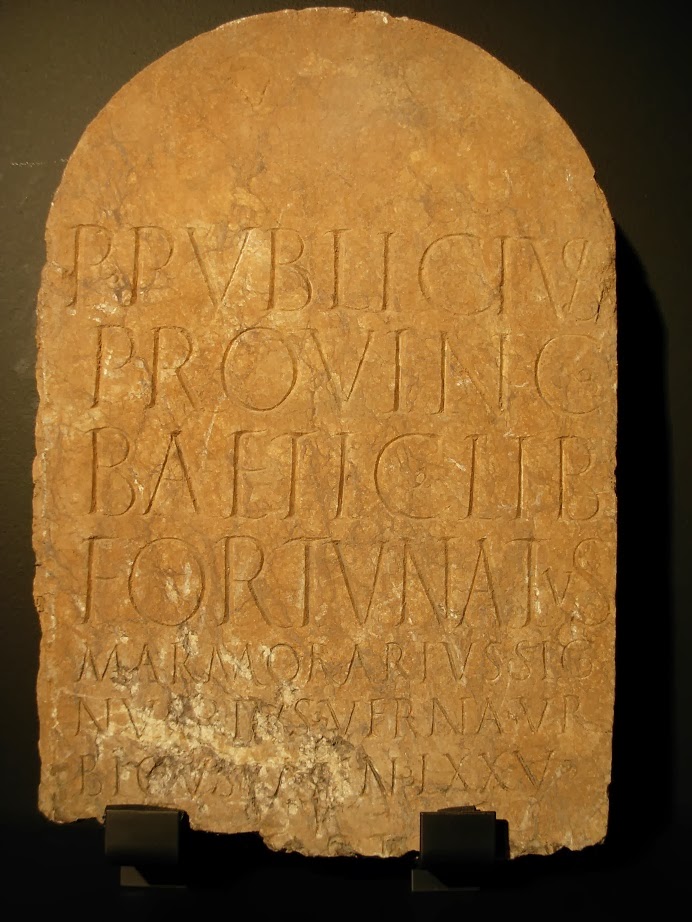 P PVBLICIVS
PROVINC
BAETIC LIB
FORTVNATVS
MARMORARIVS SIG
NVARIVS VERNA VR
BICVS N LXXV